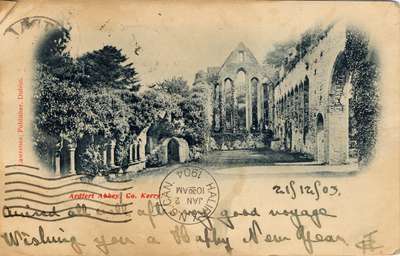 Lawrence, Publisher, Dublin.
Ardfert Abbey, Co. Kerry.
HALIFAX CAN
JAN 2
10 AM
1904
21/12/03.
arrived all well after very good voyage
Wishing you a Happy New Year